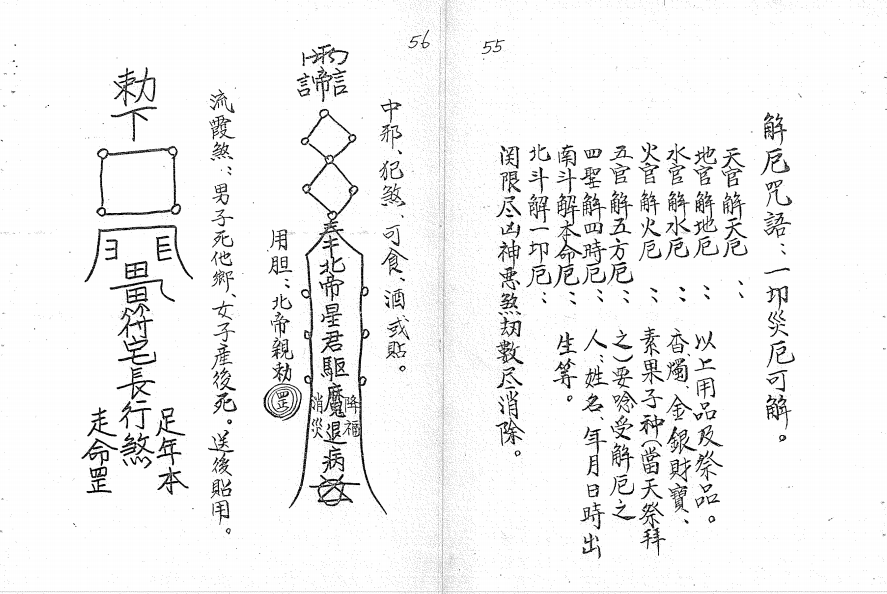 55
解厄咒語：一切災厄可解。
天官解天厄：
地官解地厄： 以上用品及祭品。
水官解水厄： 香、燭、金、銀財寶、
火官解火厄： 素果子种(當天祭拜
五官解五方厄： 之)要唸受解厄之
四聖解四時厄： 人：姓名、年月日時出
南斗解本命厄： 生等。
北斗解一切厄：
関限尽凶神悪煞劫数尽消除。
56
中邪、犯煞、可食、酒或貼。
奉北帝星君駆魔退病
降福
消災
用胆：北帝親勅
罡
流霞煞：男子死他鄉、女子産後死。送後貼用。
勅下
符宅長行煞
足年本
走命罡